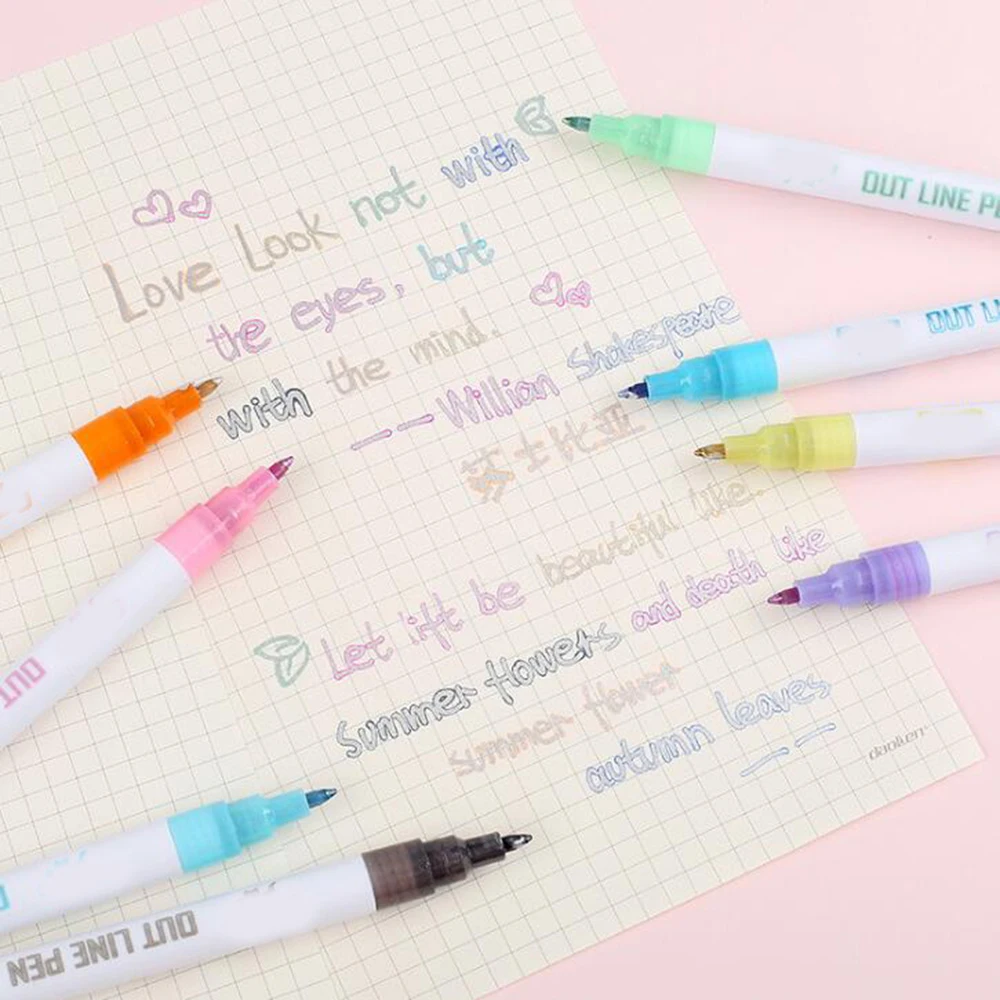 Love Look not with
the eyes, but
with the mind.
——Willian Shakespeare
莎士比亚
Let lift be beautiful like.
summer flowers and death like
summer flower
autumn leaves
——
OUT LINE PE
OUT LI
OUT
OUT LINE PEN